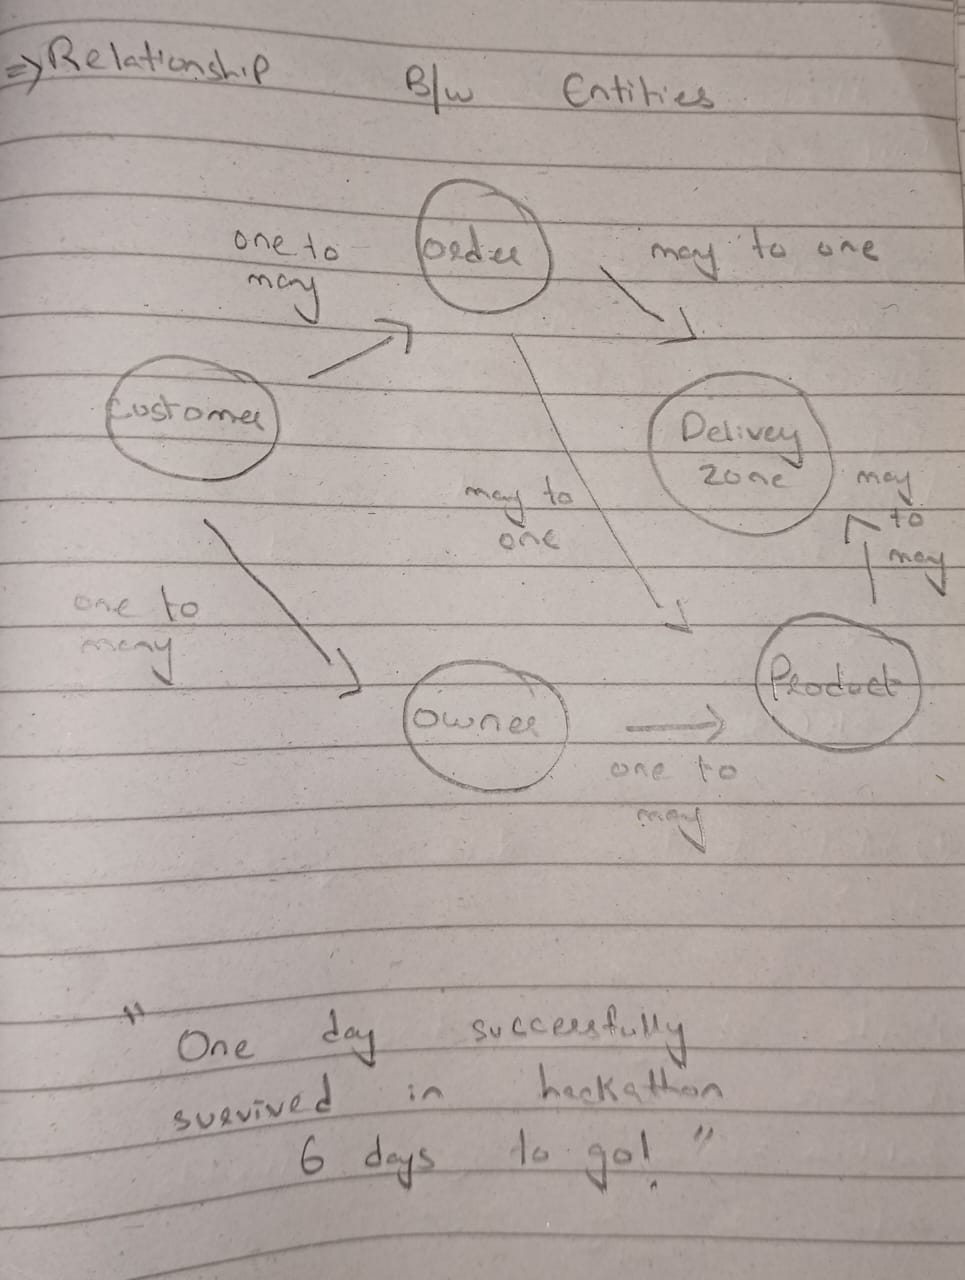 ⇒ Relationship B/w Entities
one to
may
Order
may to one
Customer
Delivey
zone
may to
one
may
to
may
one to
meny
Owner
Product
one to
may
" One day successfully
survived in hackathon
6 days to go! "